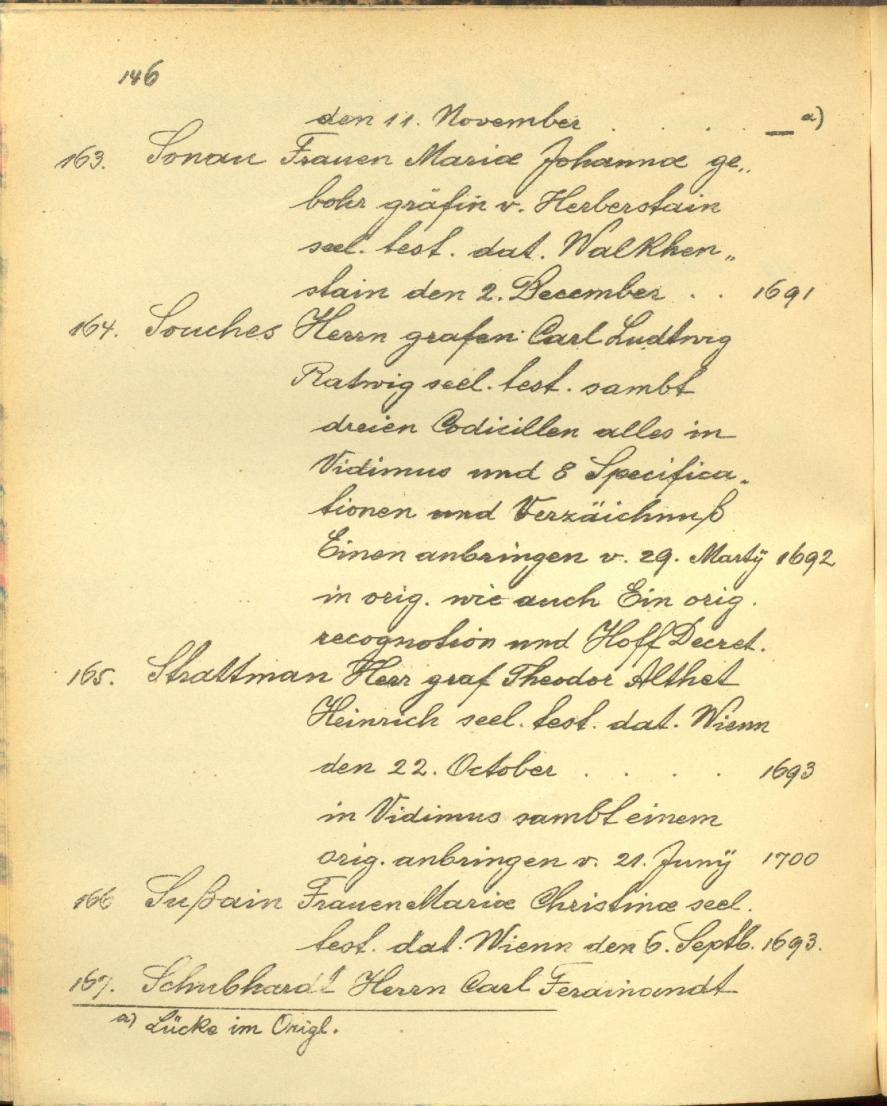 146
den 11. November . . . . — a)
163. Sonau Frauen Mariæ Johannæ ge„
bohr gräfin v. Herberstain
seel. test. dat. Walkhen„
stain den 2. December . . 1691
164. Souches Herrn grafen Carl Ludtwig
Ratwig seel. test. sambt
dreien Codicillen alles in
Vidimus und 8 Specifica„
tionen und Verzäichnuß
Einen anbringen v. 29. Martÿ 1692
in orig. wie auch Ein orig.
recognotion und Hoff Decret.
165. Strattman Herr graf Theodor Althet
Heinrich seel. test. dat. Wienn
den 22. October . . . . 1693
in Vidimus sambt einem
orig. anbringen v. 21. Junÿ 1700
166 Sußain Frauen Mariæ Christinæ seel.
test. dat. Wienn den 6. Septb. 1693.
167. Schubhardt Herrn Carl Ferdinandt
a) Lücke im Origl.